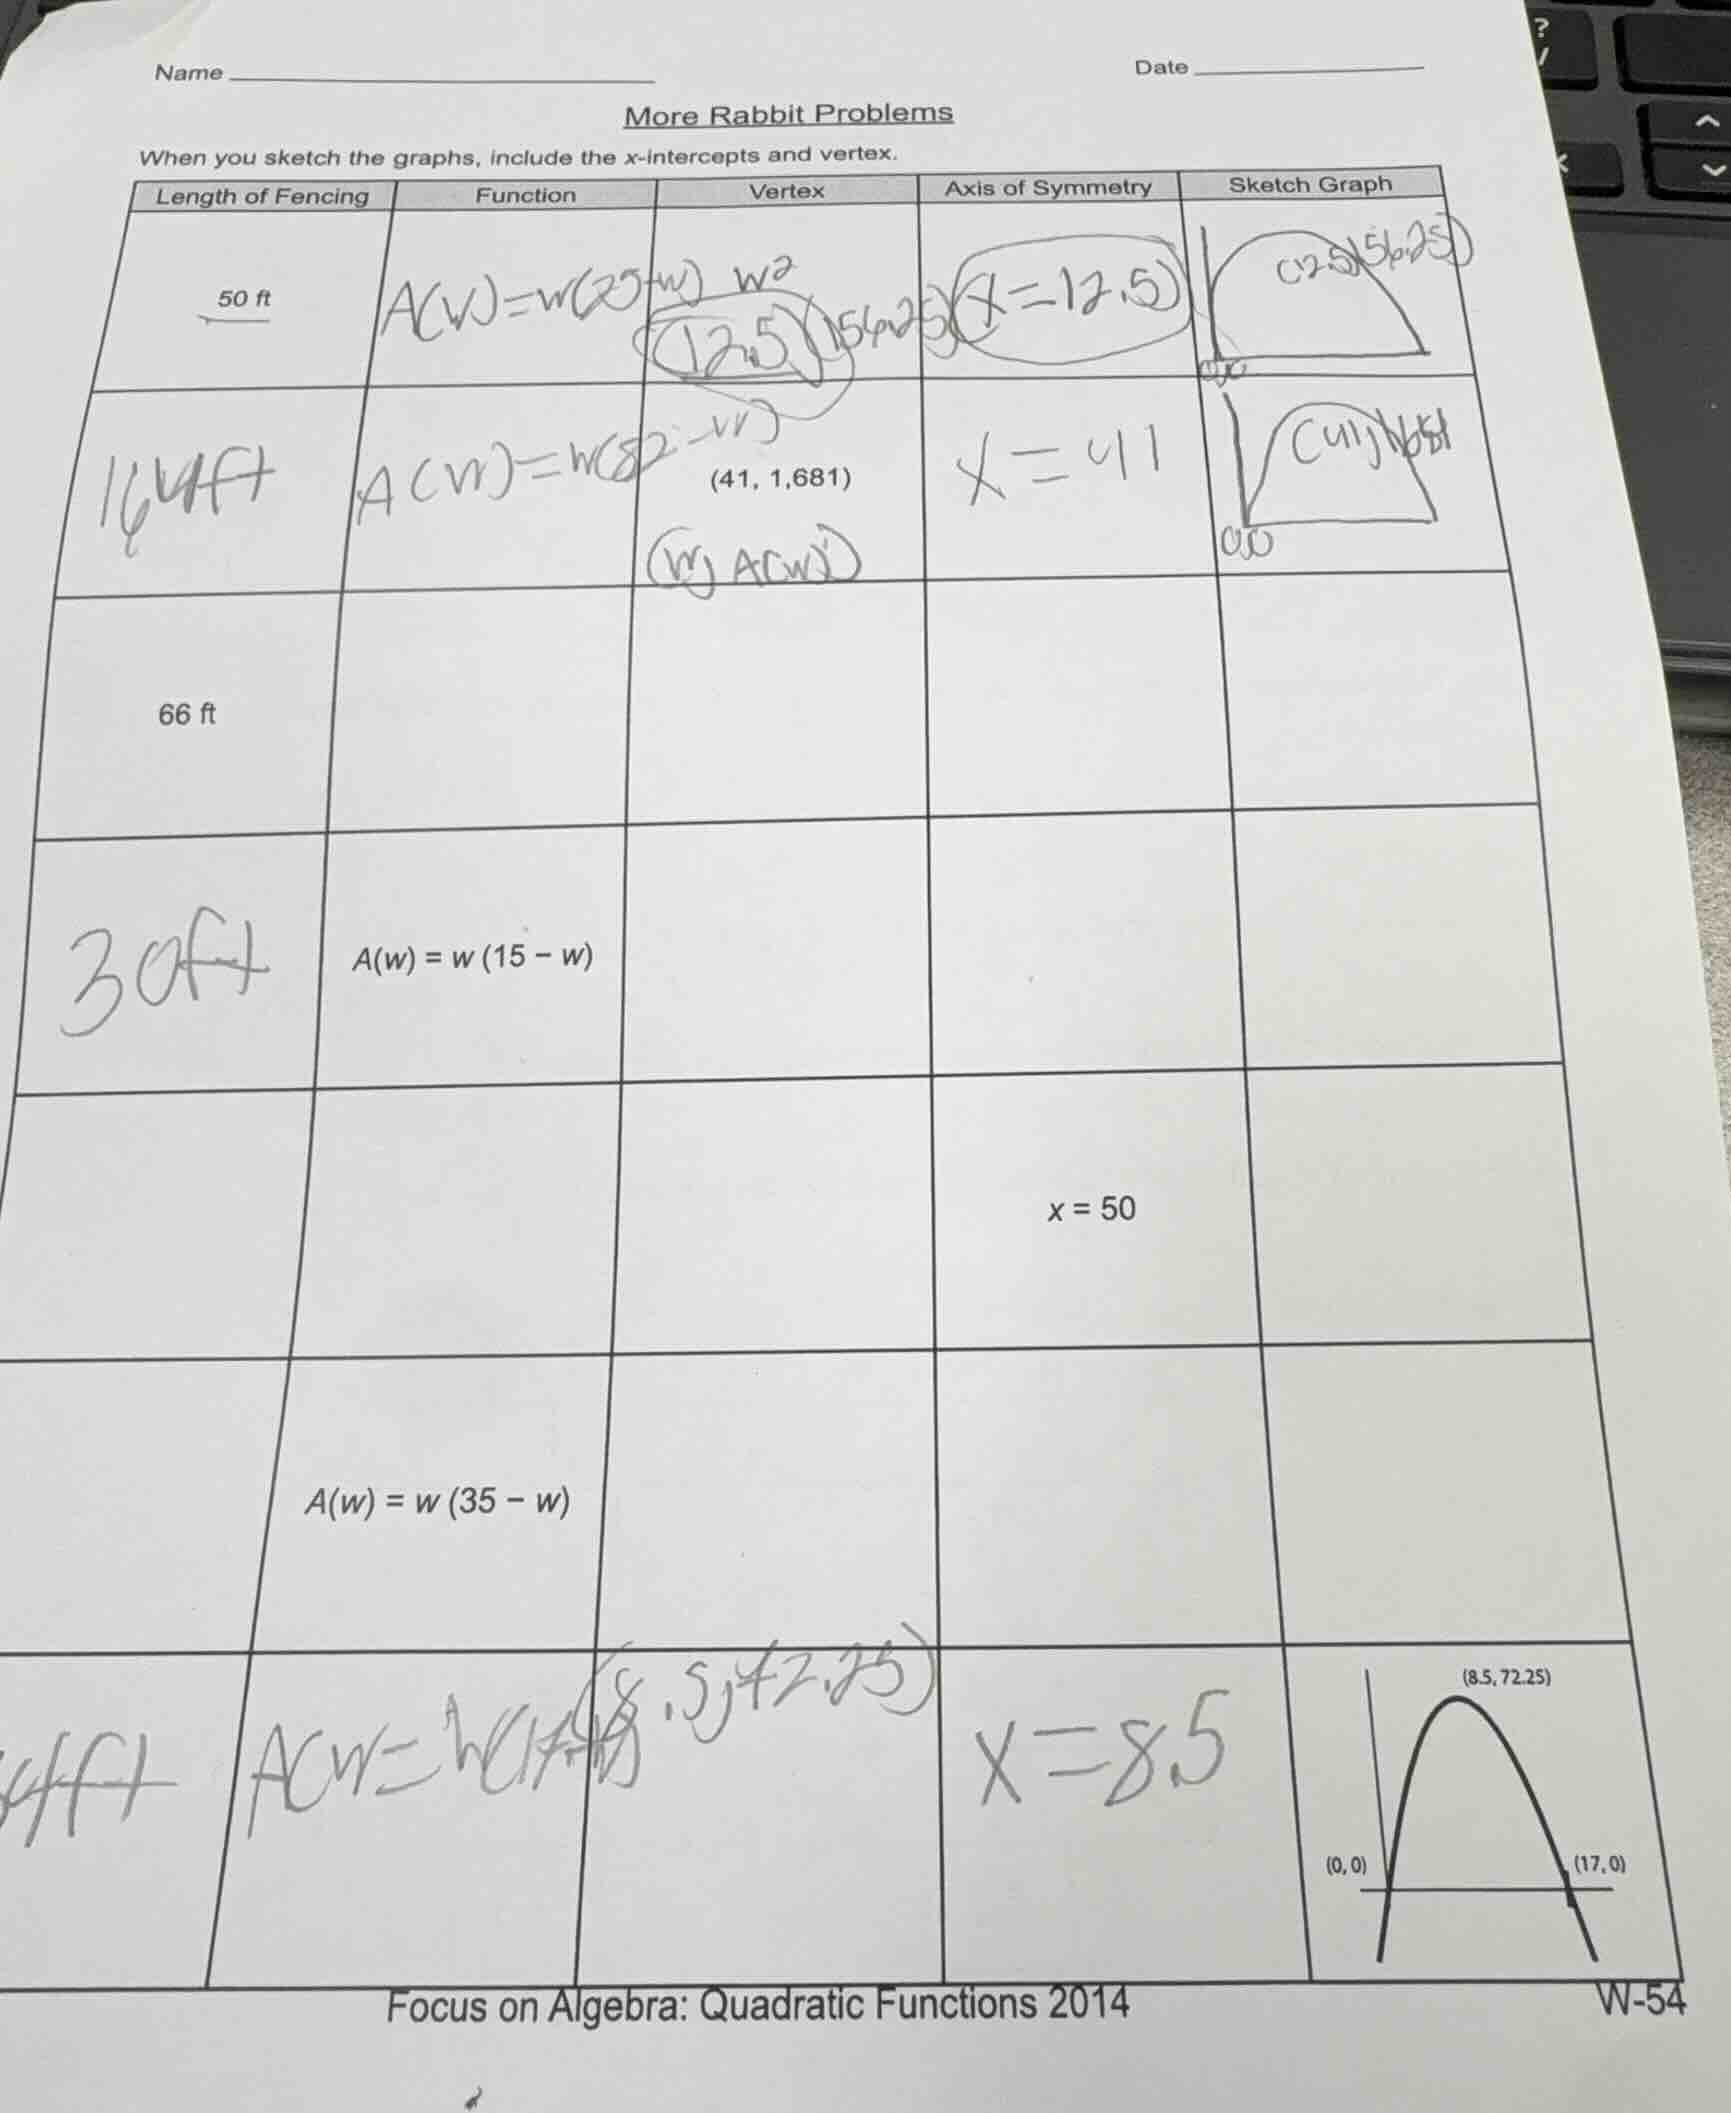 Name
Date
More Rabbit Problems
When you sketch the graphs, include the x-intercepts and vertex.
Length of Fencing Function Vertex Axis of Symmetry Sketch Graph
50 ft A(w)=w(25-w) w² (12.5)(156.25) (x=12.5) (12.5)(156.25)
0,0
164ft A(w)=w(82-w) (41, 1,681) x=41 (41,1681
(w, A(w)) 0,0
66 ft
30ft A(w) = w (15 − w)
x = 50
A(w) = w (35 − w)
(8.5, 72.25) (8.5, 72.25)
34ft A(w= w(17-w) x=8.5
(0, 0) (17, 0)
Focus on Algebra: Quadratic Functions 2014 W-54